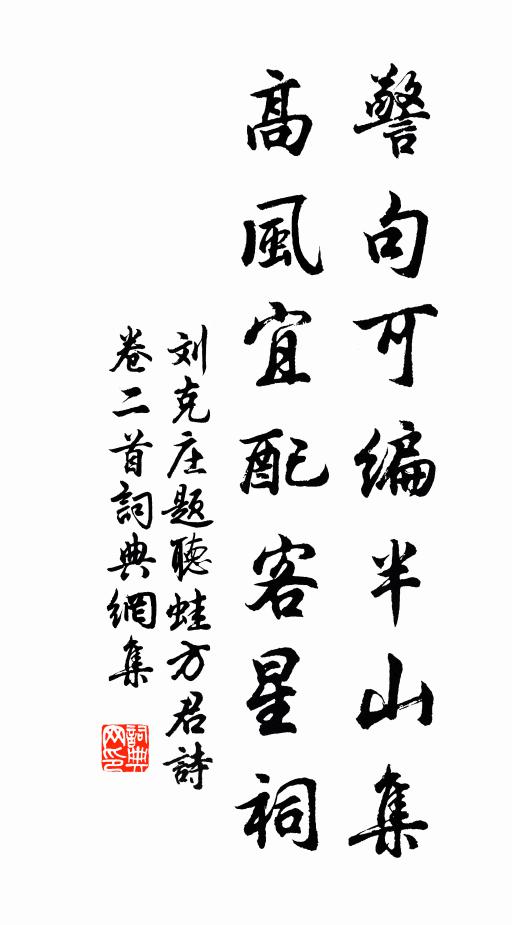 警句可编半山集
高風宜配客星祠
刘克庄题聽蛙方君詩
卷二首詞典網集
詞典
网印